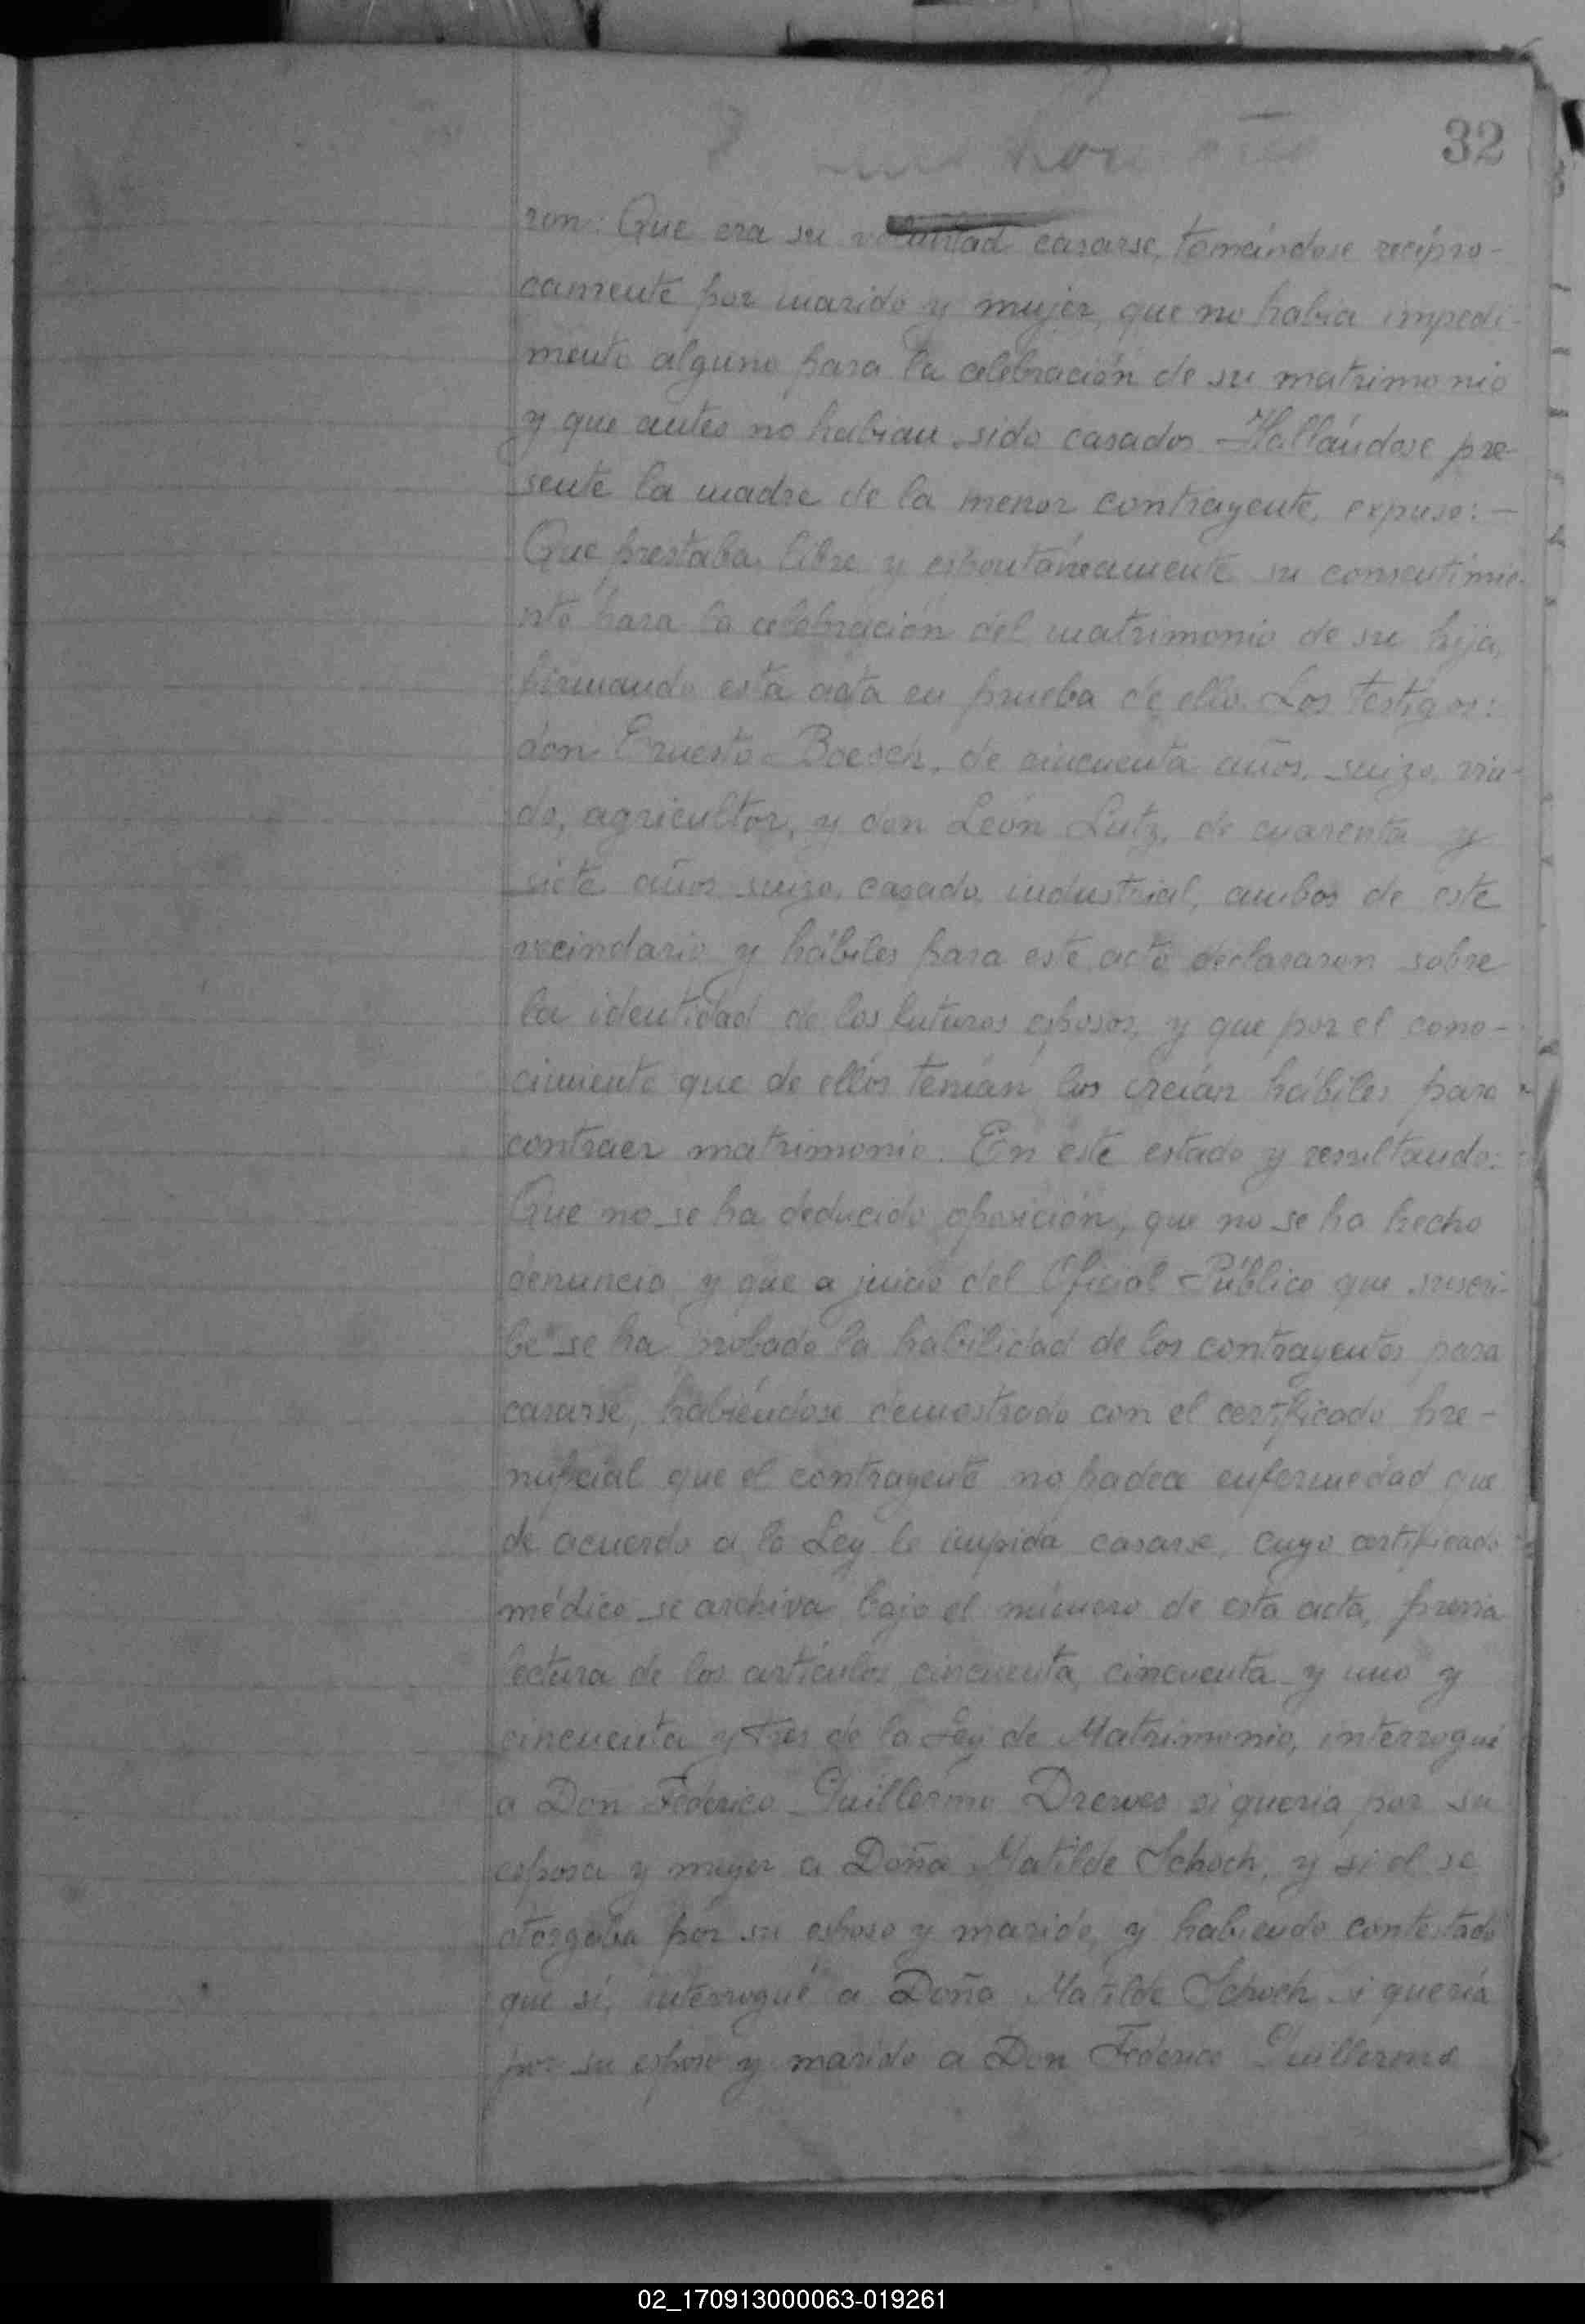 32
ron: Que era su voluntad casarse, tomándose recípro-
camente por marido y mujer, que no habia impedi-
mento alguno para la celebración de su matrimonio
y que antes no habian sido casados. Hallándose pre-
sente la madre de la menor contrayente, expuso: —
Que prestaba libre y espontáneamente su consentimie-
nto para la celebración del matrimonio de su hija,
firmando esta acta en prueba de ello. Los testigos:
don Ernesto Boesch, de cincuenta años, suizo, viu-
do, agricultor, y don León Lutz, de cuarenta y
siete años suizo, casado, industrial, ambos de este
vecindario y hábiles para este acto declararon sobre
la identidad de los futuros esposos, y que por el cono-
cimiento que de ellos tenían los creían hábiles para
contraer matrimonio. En este estado y resultando:
Que no se ha deducido oposición, que no se ha hecho
denuncia y que a juicio del Oficial Público que suscri-
be se ha probado la habilidad de los contrayentes para
casarse, habiéndose demostrado con el certificado pre-
nupcial que el contrayente no padece enfermedad que
de acuerdo a la Ley le impida casarse, cuyo certificado
médico se archiva bajo el número de esta acta, previa
lectura de los artículos cincuenta, cincuenta y uno y
cincuenta y tres de la Ley de Matrimonio, interrogué
a Don Federico Guillermo Drewes si quería por su
esposa y mujer a Doña Matilde Schoch, y si él se
otorgaba por su esposo y marido, y habiendo contestado
que sí, interrogué a Doña Matilde Schoch si quería
por su esposo y marido a Don Federico Guillermo
02_170913000063-019261